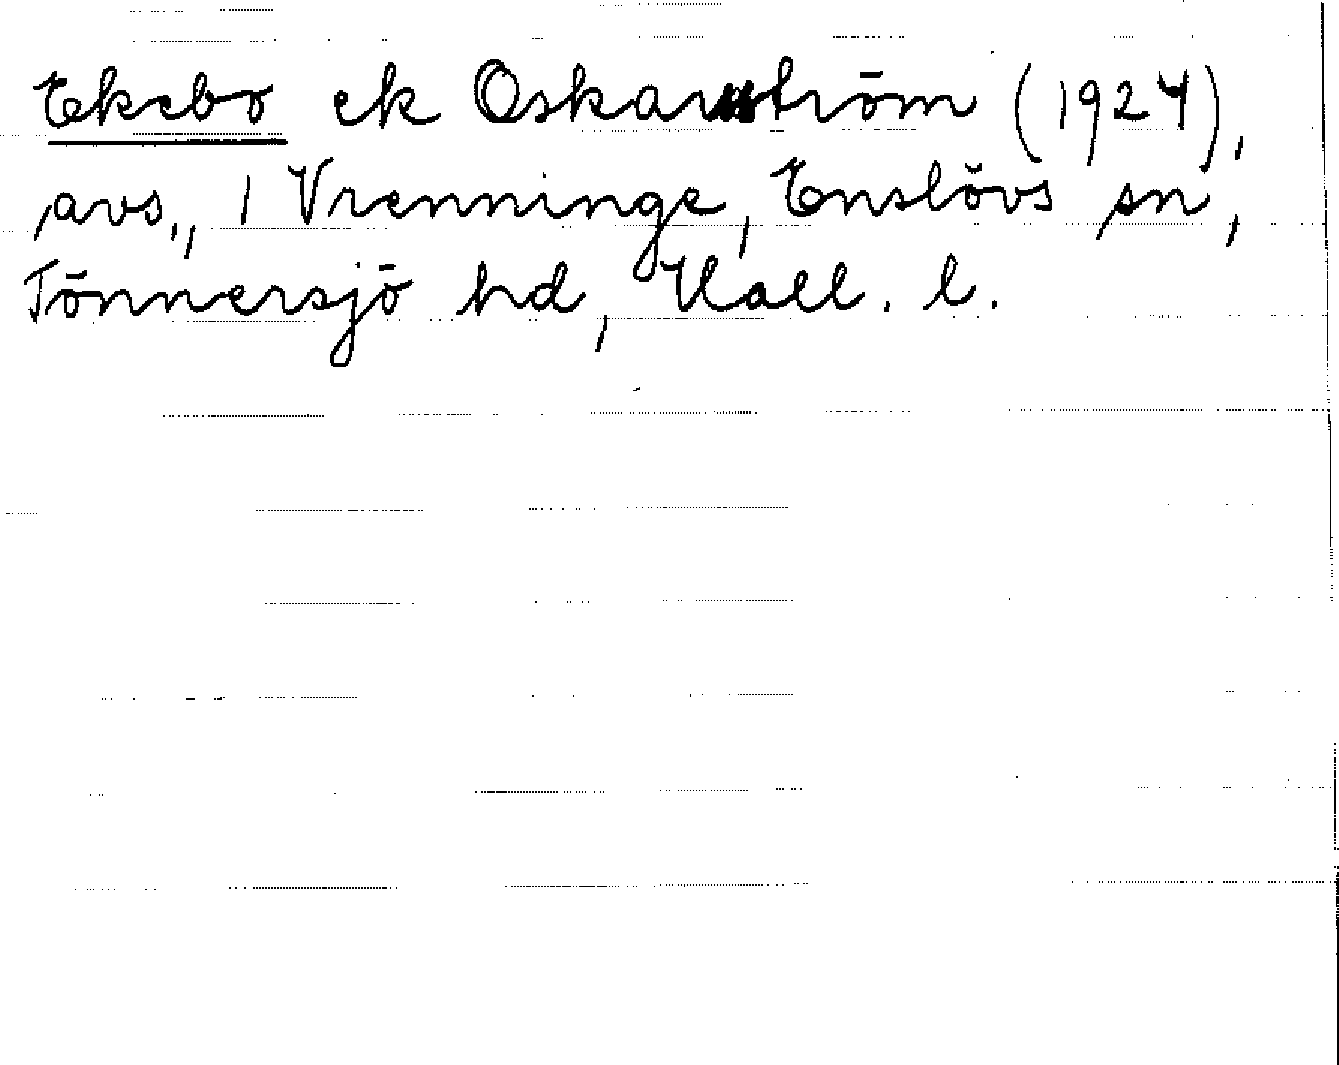 Ekebo ek Oskarström (1924),
avs., 1 Vrenninge, Enslövs sn,
Tönnersjö hd, Hall. l.